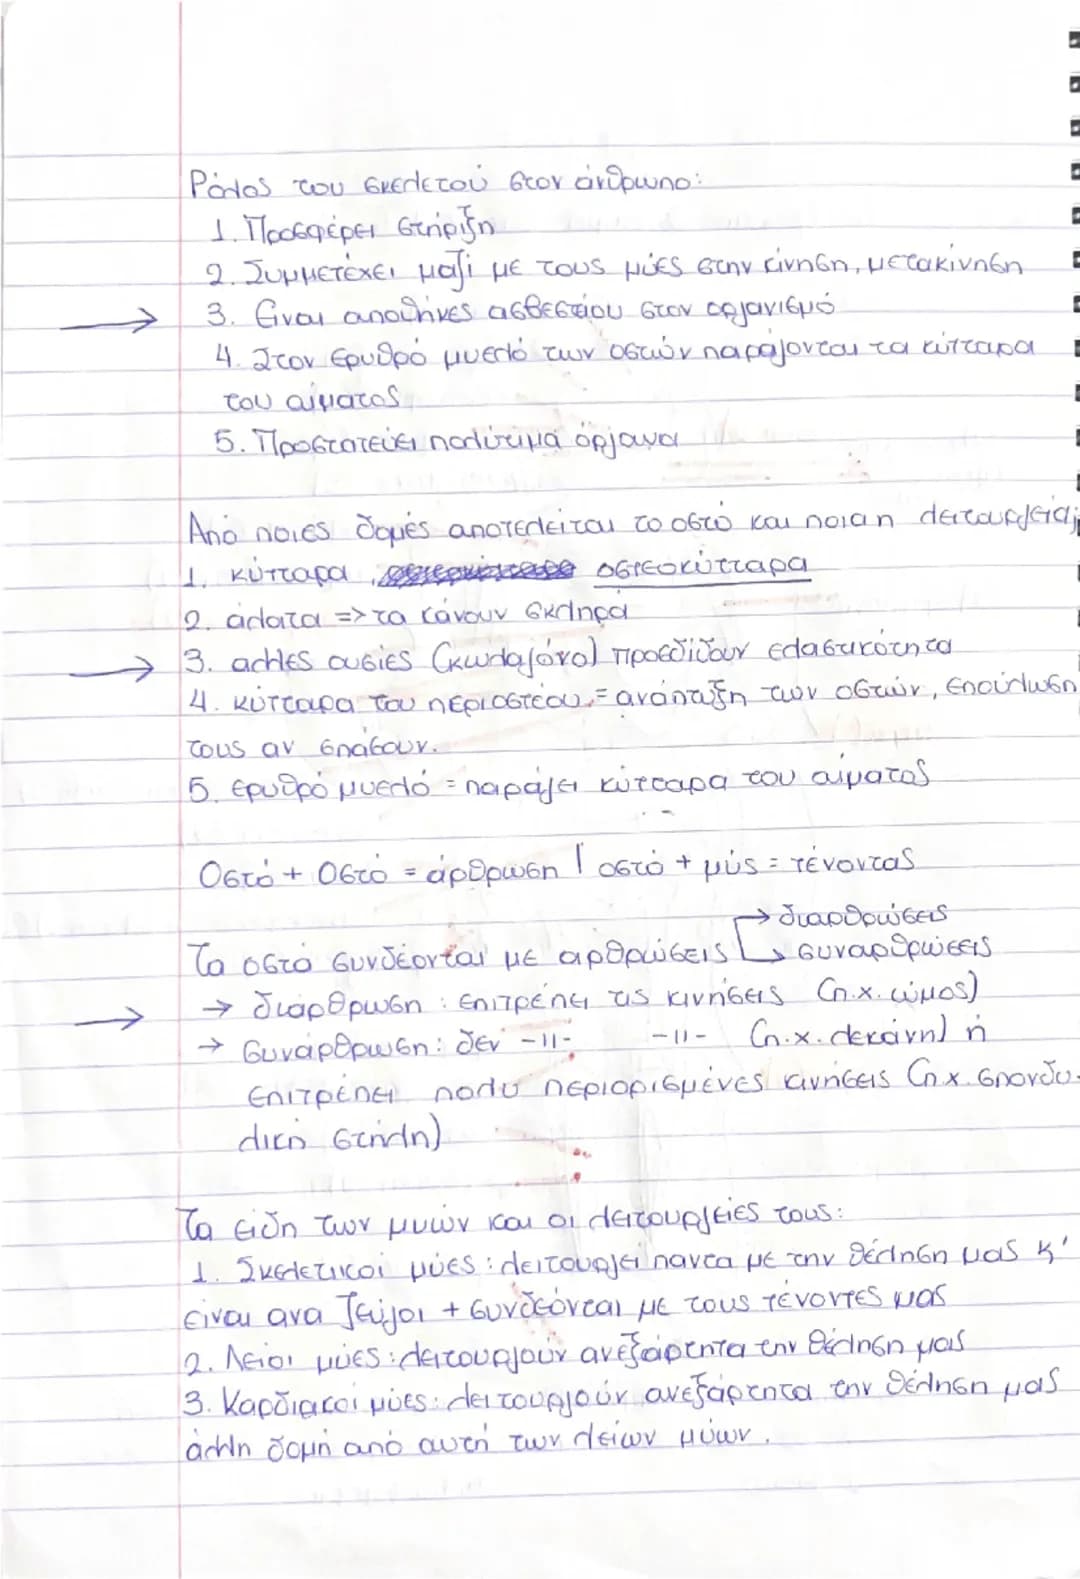 Ρόλος του σκελετού στον άνθρωπο:
1. Προσφέρει στήριξη
2. Συμμετέχει μαζί με τους μύες στην κίνηση, μετακίνηση
→ 3. Είναι αποθήκες ασβεστίου στον οργανισμό
4. Στον ερυθρό μυελό των οστών παράγονται τα κύτταρα
του αίματος
5. Προστατεύει πολύτιμα όργανα
Από ποιες δομές αποτελείται το οστό και ποια η λειτουργεία;
1. κύτταρα, οστεοκύτταρα
2. άλατα => τα κάνουν σκληρά
→ 3. άλλες ουσίες (κωλαγόνο) προσδίδουν ελαστικότητα
4. κύτταρα του περιοστέου = ανάπτυξη των οστών, επούλωση
τους αν σπάσουν.
5. Ερυθρό μυελό = παράγει κύτταρα του αίματος
Οστό + Οστό = άρθρωση | οστό + μύς = τένοντας
→ διαρθρώσεις
Τα οστά συνδέονται με αρθρώσεις → συναρθρώσεις
→ → διάρθρωση : επιτρέπει τις κινήσεις (π.χ. ώμος)
→ συνάρθρωση: δεν -11- -11- (π.χ. λεκάνη) ή
επιτρέπει πολύ περιορισμένες κινήσεις (π.χ. σπονδυ-
λική στήλη)
Τα είδη των μυών και οι λειτουργείες τους:
1. Σκελετικοί μύες: λειτουργεί πάντα με την θέληση μας κ'
είναι ανα ζεύγοι + συνδέονται με τους τένοντες μας
2. Λείοι μύες: λειτουργούν ανεξάρτητα την θέληση μας
3. Καρδιακοί μύες: λειτουργούν ανεξάρτητα την θέληση μας
άλλη δομή από αυτή των λείων μύων.